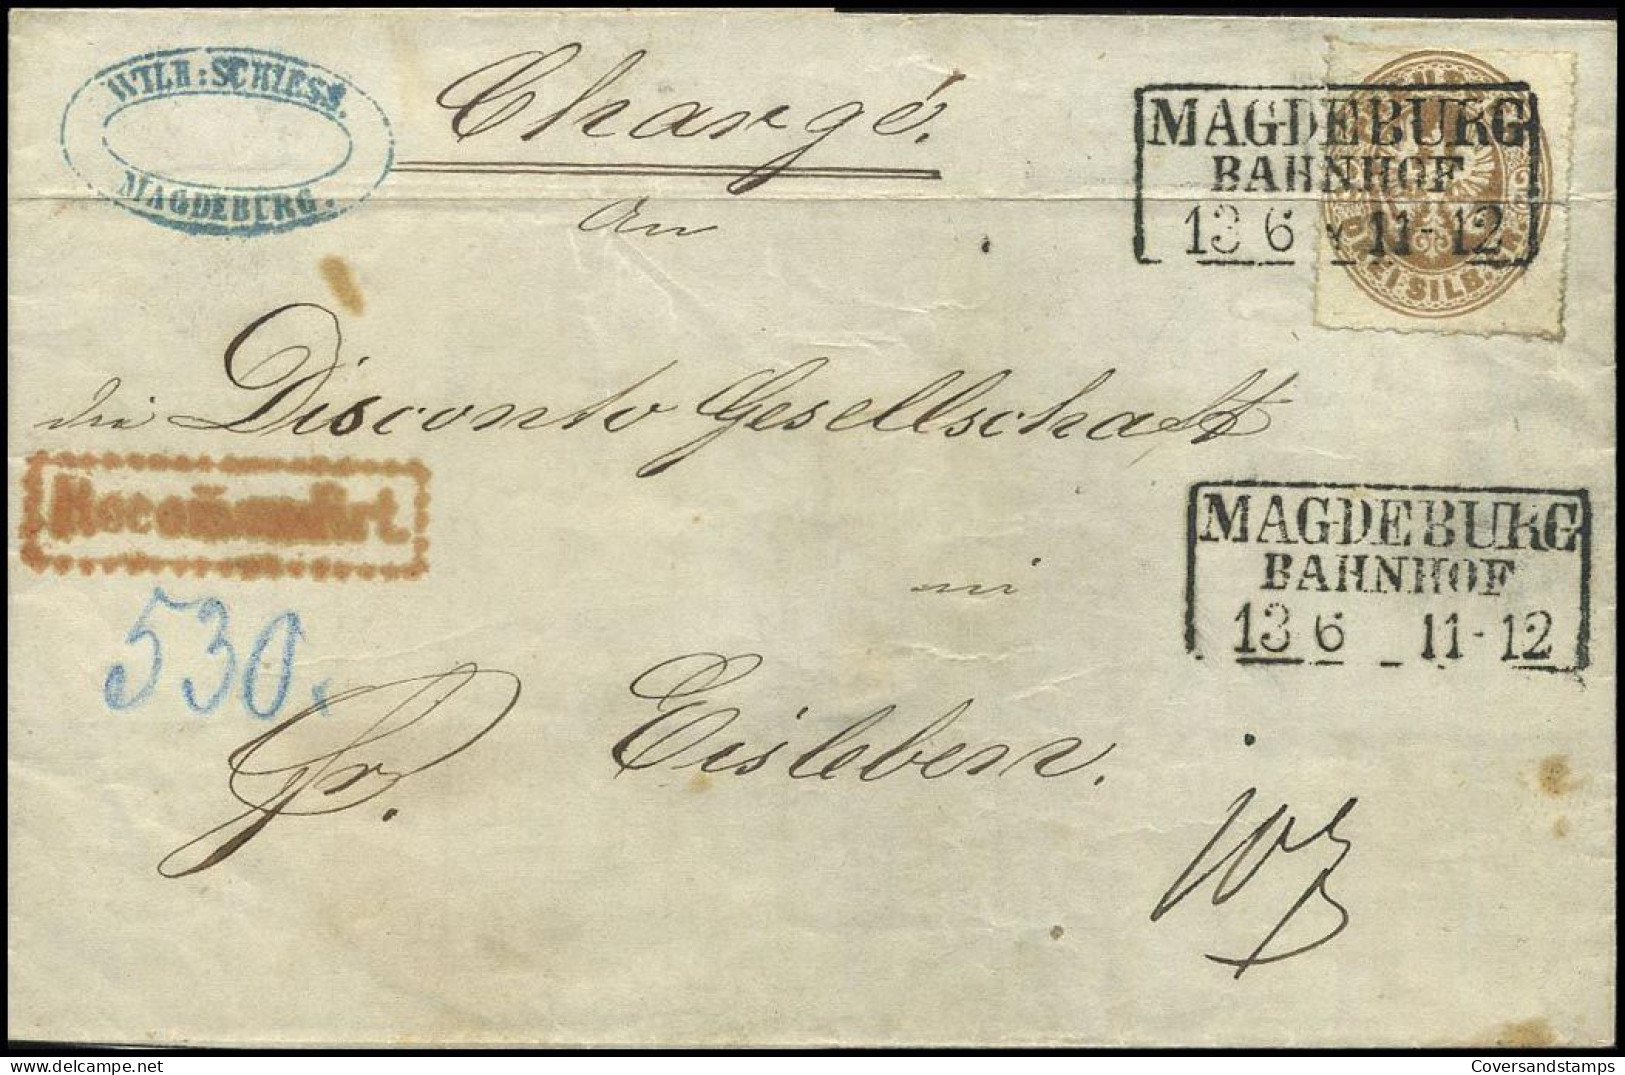 WILH: SCHIESS.
MAGDEBURG.
Chargé.
MAGDEBURG
BAHNHOF
13 6 11-12
DREI SILB. GR.
An
die Disconto Gesellschaft
Recom̄andirt.
MAGDEBURG
BAHNHOF
13 6 11-12
in
530.
fr.
Eisleben.
Coversandstamps